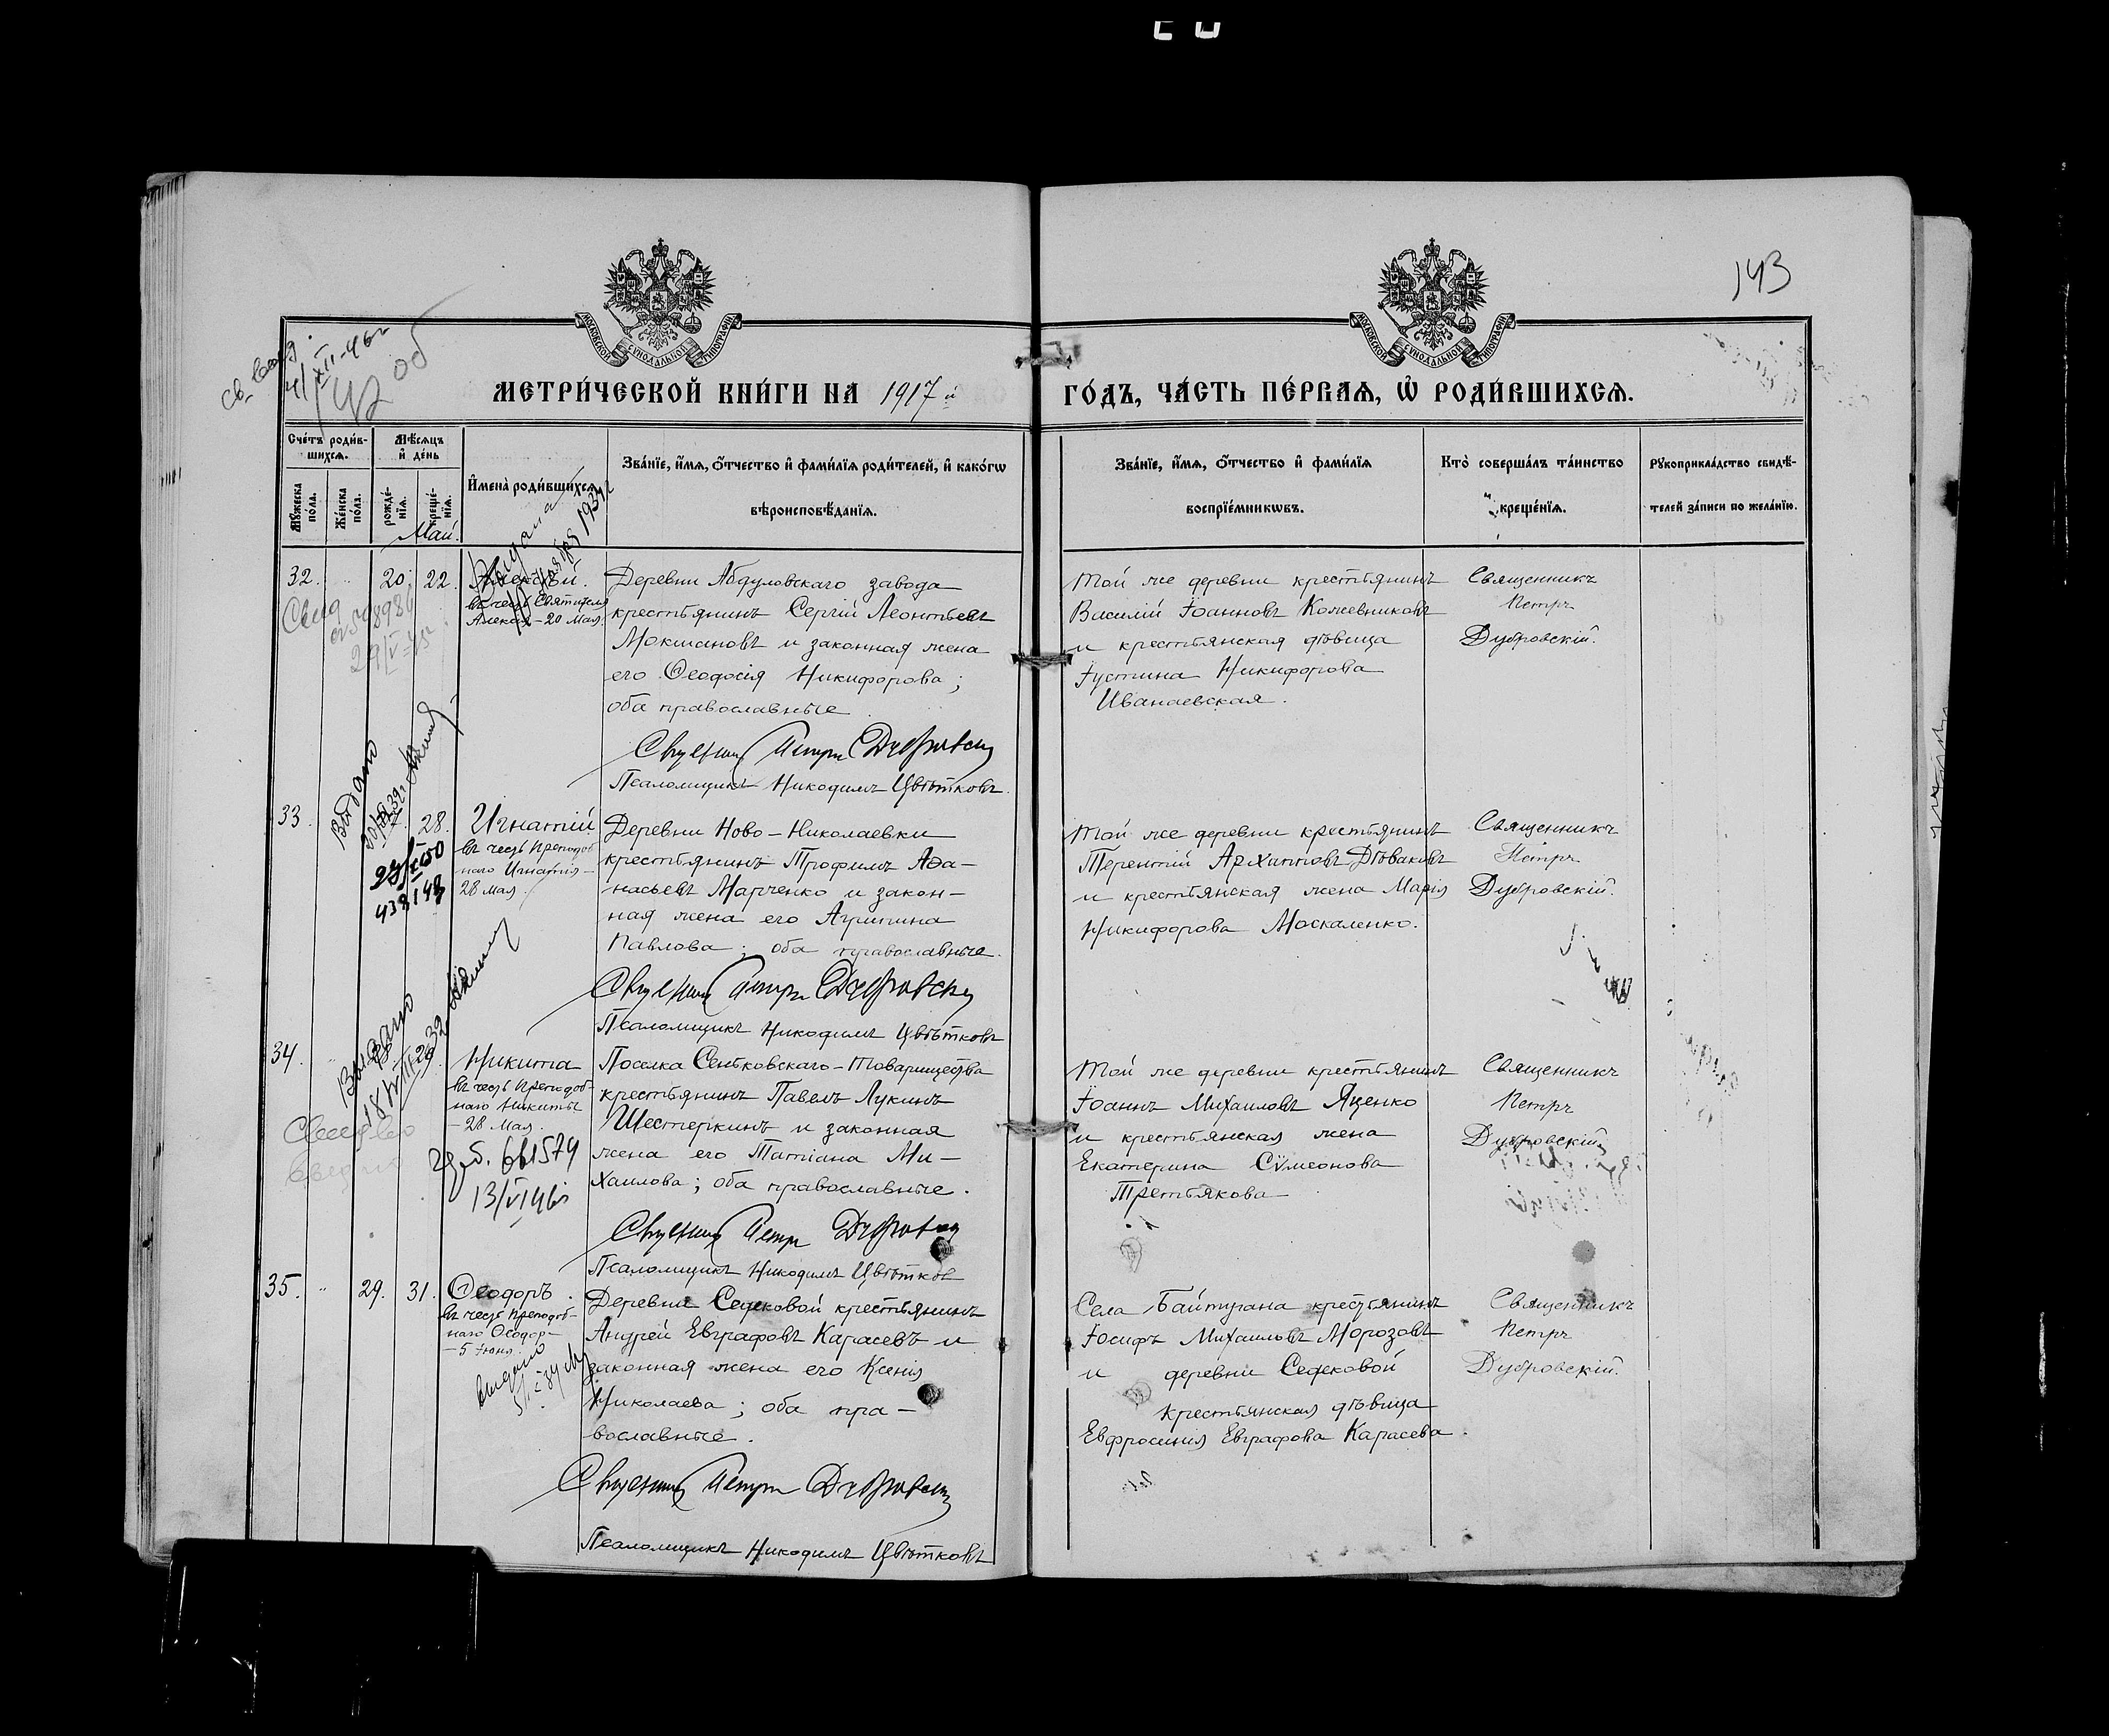 143
МОСКОВСКОЙ СѴНОДАЛЬНОЙ ТИПОГРАФІИ
МОСКОВСКОЙ СѴНОДАЛЬНОЙ ТИПОГРАФІИ
МЕТРИ́ЧЕСКОЙ КНИ́ГИ НА 1917 й ГО́ДЪ, ЧА́СТЬ ПЕ́РВАѦ, Ѡ҆ РОДИ́ВШИХСѦ.
Сче́тъ роди́в-
шихсѧ.
Мѣ́сѧцъ
и҆ де́нь
Мꙋ́жеска по́ла.
Же́нска по́ла.
рожде́-нїѧ.
креще́-нїѧ.
И҆мена̀ роди́вшихсѧ.
Зва́нїе, и҆́мѧ, ѻ҆́тчество и҆ фами́лїѧ роди́телей, и҆ како́гѡ
вѣроисповѣ́данїѧ.
Зва́нїе, и҆́мѧ, ѻ҆́тчество и҆ фами́лїѧ
воспрїе́мникѡвъ.
Кто̀ соверша́лъ та́инство
креще́нїѧ.
Рꙋкоприкла́дство свидѣ́-
телей за́писи по жела́нїю.
Май.
32. 20. 22. Алексѣй.
въ честь Святителя
Алексѣя – 20 Мая.
Деревни Абдуловскаго завода
крестьянинъ Сергій Леонтьевъ
Мокшановъ и законная жена
его Ѳеодосія Никифорова;
оба православные
Священникъ Петръ Дубровскій
Псаломщикъ Никодимъ Цвѣтковъ
Той же деревни крестьянинъ
Василій Іоанновъ Кожевниковъ
и крестьянская дѣвица
Іустина Никифорова
Иванаевская.
Священникъ
Петръ
Дубровскій.
33. 28. Игнатій
въ честь Преподоб
наго Игнатія –
28 Мая.
Деревни Ново-Николаевки
крестьянинъ Трофимъ Аѳа-
насьевъ Марченко и закон-
ная жена его Агрипина
Павлова; оба православные.
Священникъ Петръ Дубровскій
Псаломщикъ Никодимъ Цвѣтковъ
Той же деревни крестьянинъ
Терентій Архиповъ
и крестьянская жена Марія
Никифорова Москаленко.
Священникъ
Петръ
Дубровскій.
34. Никита
въ честь Преподоб-
наго Никиты
– 28 Мая.
Поселка Сентковскаго-Товарищества
крестьянинъ Павелъ Лукинъ
Шестеркинъ и законная
жена его Татіана Ми-
хаилова; оба православные.
Священникъ Петръ Дубровскій
Псаломщикъ Никодимъ Цвѣтков
Той же деревни крестьянинъ
Іоаннъ Михаиловъ Яценко
и крестьянская жена
Екатерина Сѵмеонова
Третьякова
Священникъ
Петръ
Дубровскій
35. 29. 31. Ѳеодоръ.
въ честь Преподоб-
наго Ѳеодор-
– 5 Іюня.
Деревни Седековой крестьянинъ
Андрей Евграфовъ Карасевъ и
законная жена его Ксенія
Николаева; оба пра-
вославные.
Священникъ Петръ Дубровскій
Псаломщикъ Никодимъ Цвѣтковъ
Села Байтугана крестьянинъ
Іосифъ Михаиловъ Морозовъ
и деревни Седековой
крестьянская дѣвица
Евфросинія Евграфова Карасева.
Священникъ
Петръ
Дубровскій.